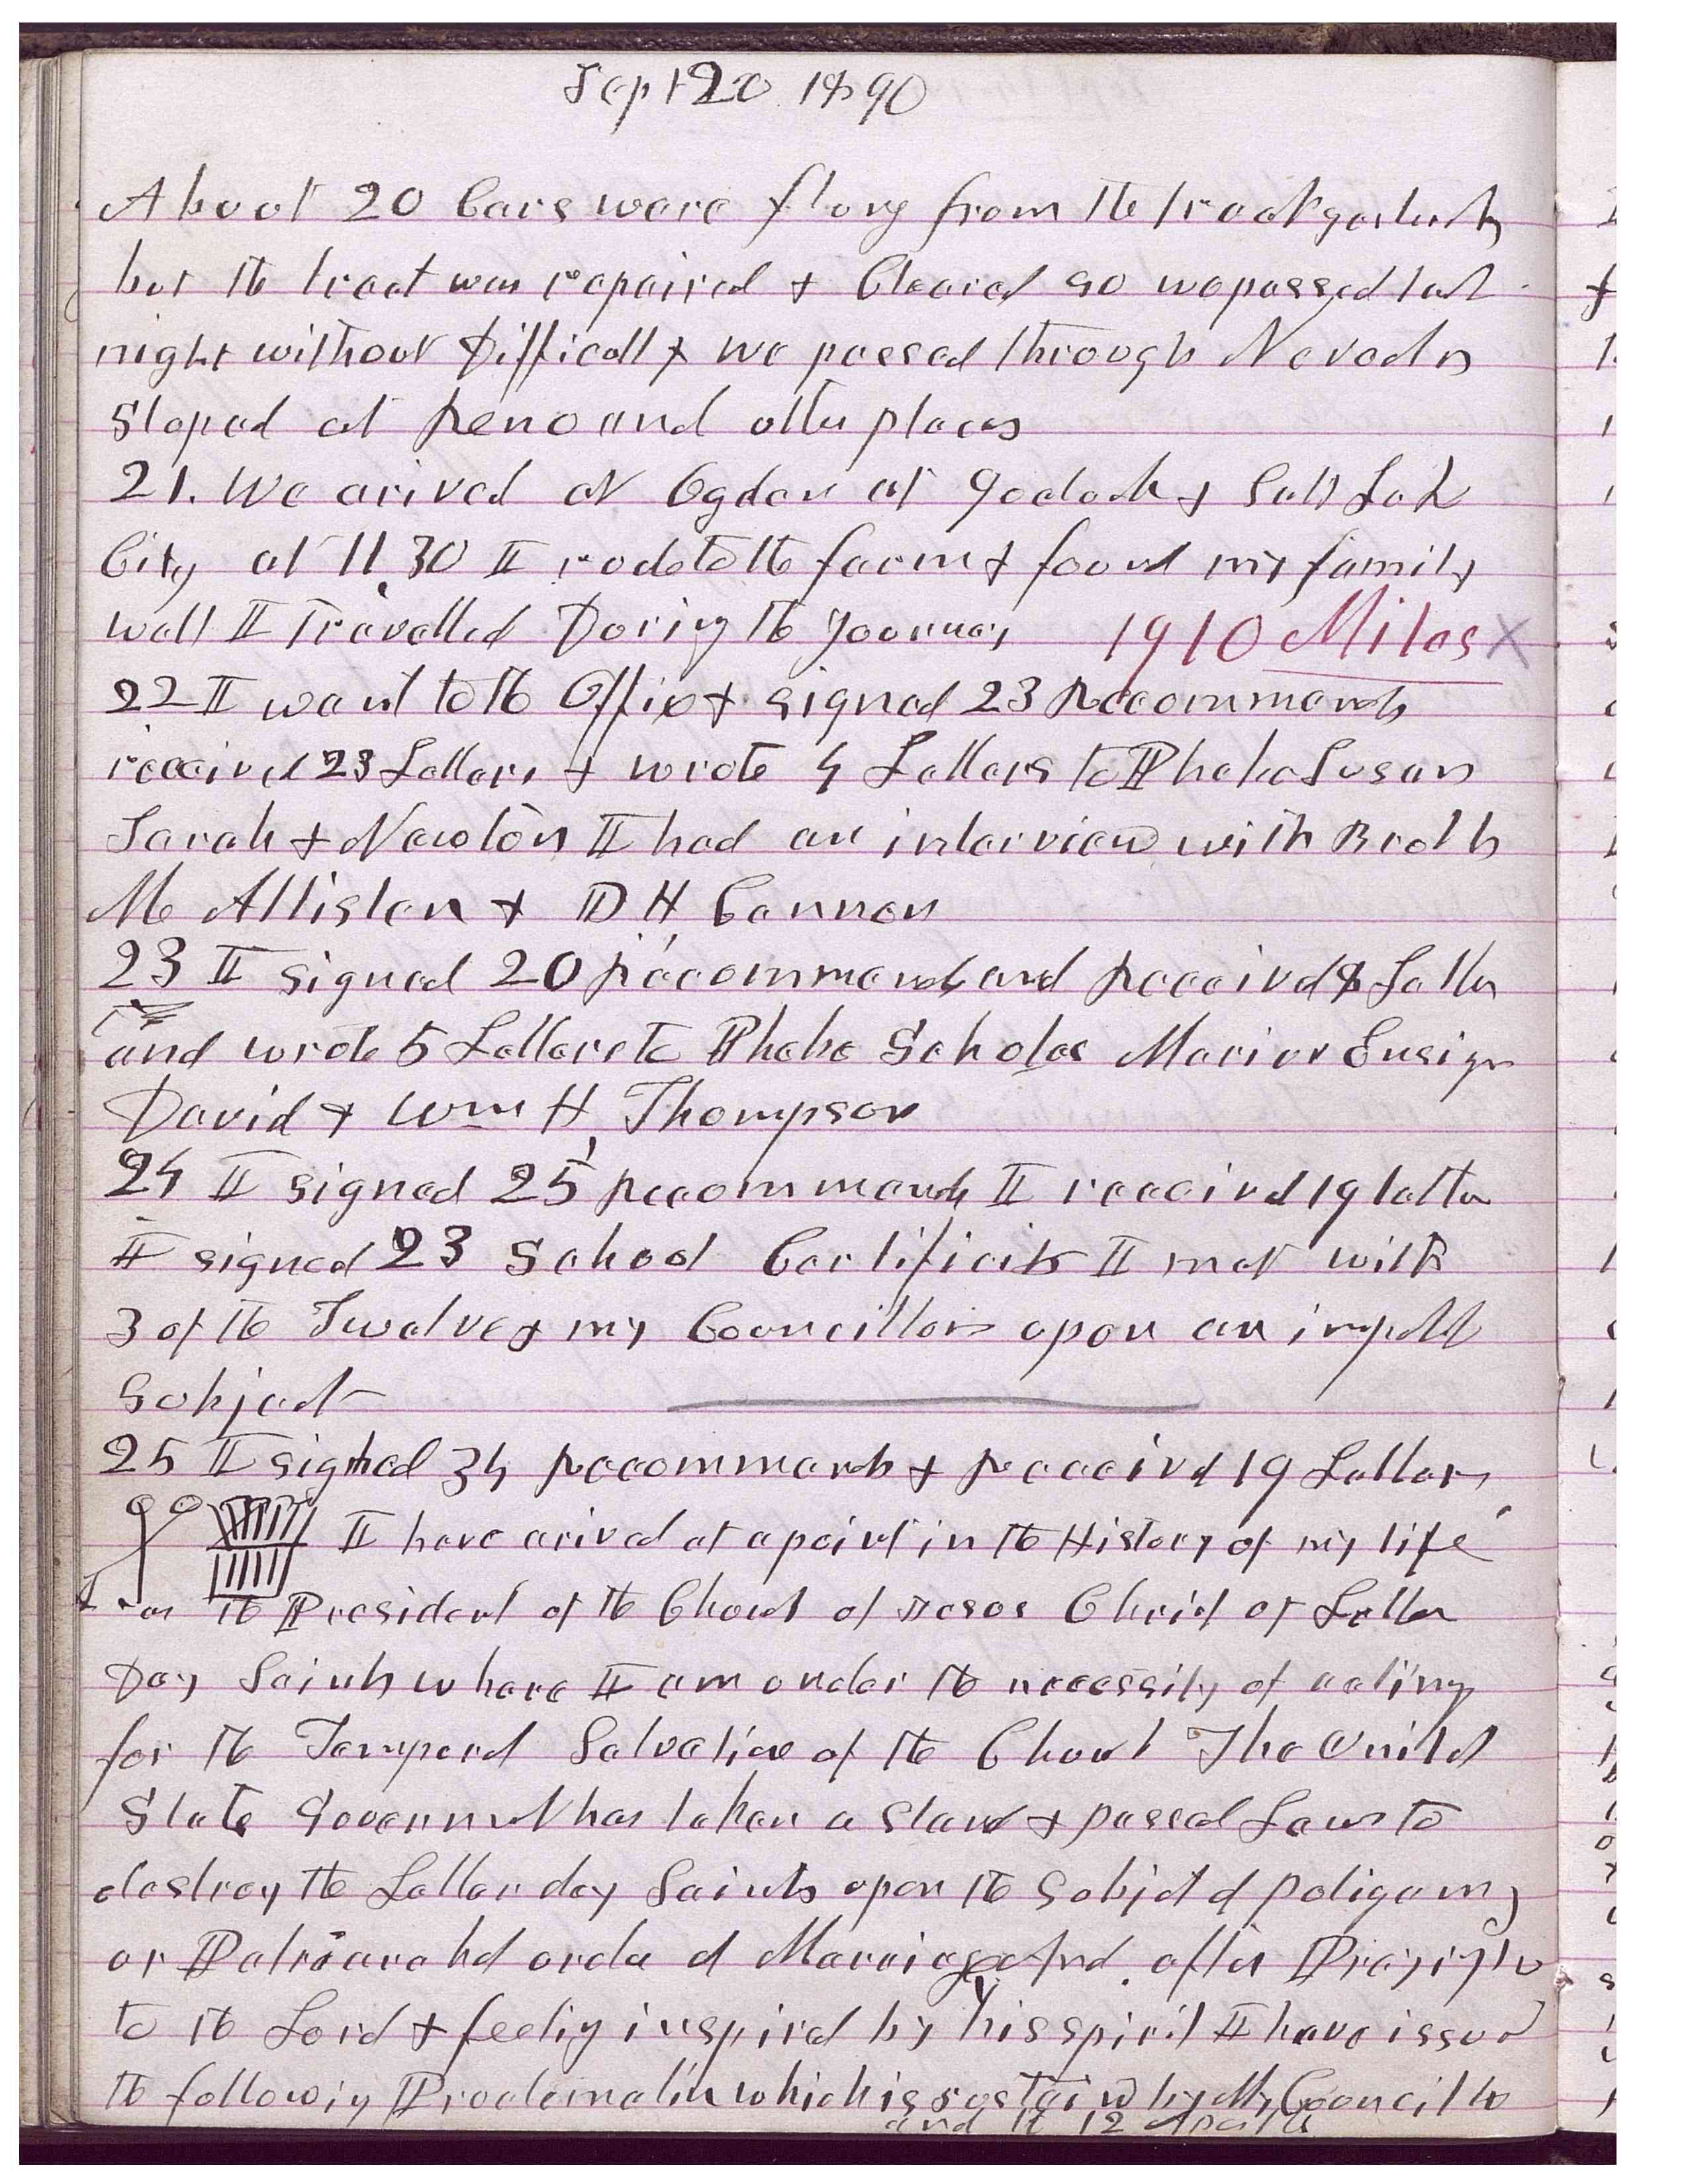 Sept 20 1890
About 20 Cars were flung from the track yesterdy
but the track was repaired & Cleared so we passed last
night without Difficulty we passed through Nevada
Stoped at Reno and other places
21. We arived at Ogden at 9 oclock & Salt Lake
City at 11,30 I rode to the farm & found my family
well I Travelled During the Journey 1910 Miles X
22 I went to the Office & signed 23 Recommends
received 23 Letters & wrote 4 Letters to Phebe Susan
Sarah & Newton I had an interview with Broth
Mc Allister & D H Cannon
23 I signed 20 Recommends and Received 8 Letter
and wrote 5 Letters to Phebe Scholes Marion Ensign
David & Wm H, Thompson
24 I signed 25 Recommends I received 19 letter
I signed 23 School Certificats I met with
3 of the Twelve & my Councillors upon an impt
Subject
25 I signed 34 Recommends & Received 19 Letters
I have arived at a point in the History of my life
as the President of the Church of Jesus Christ of Latter
Day Saints whare I am under the necessity of acting
for the Temporal Salvation of the Church The United
State Governmet has taken a Stand & passed Laws to
destroy the Latter day Saints upon the Subjet of poligamy
or Patriarchal order of Marriage And after Praying
to the Lord & feeling inspired by his spirit I have issued
the following Proclamation which is sustained by My Councillors
and the 12 Apostles